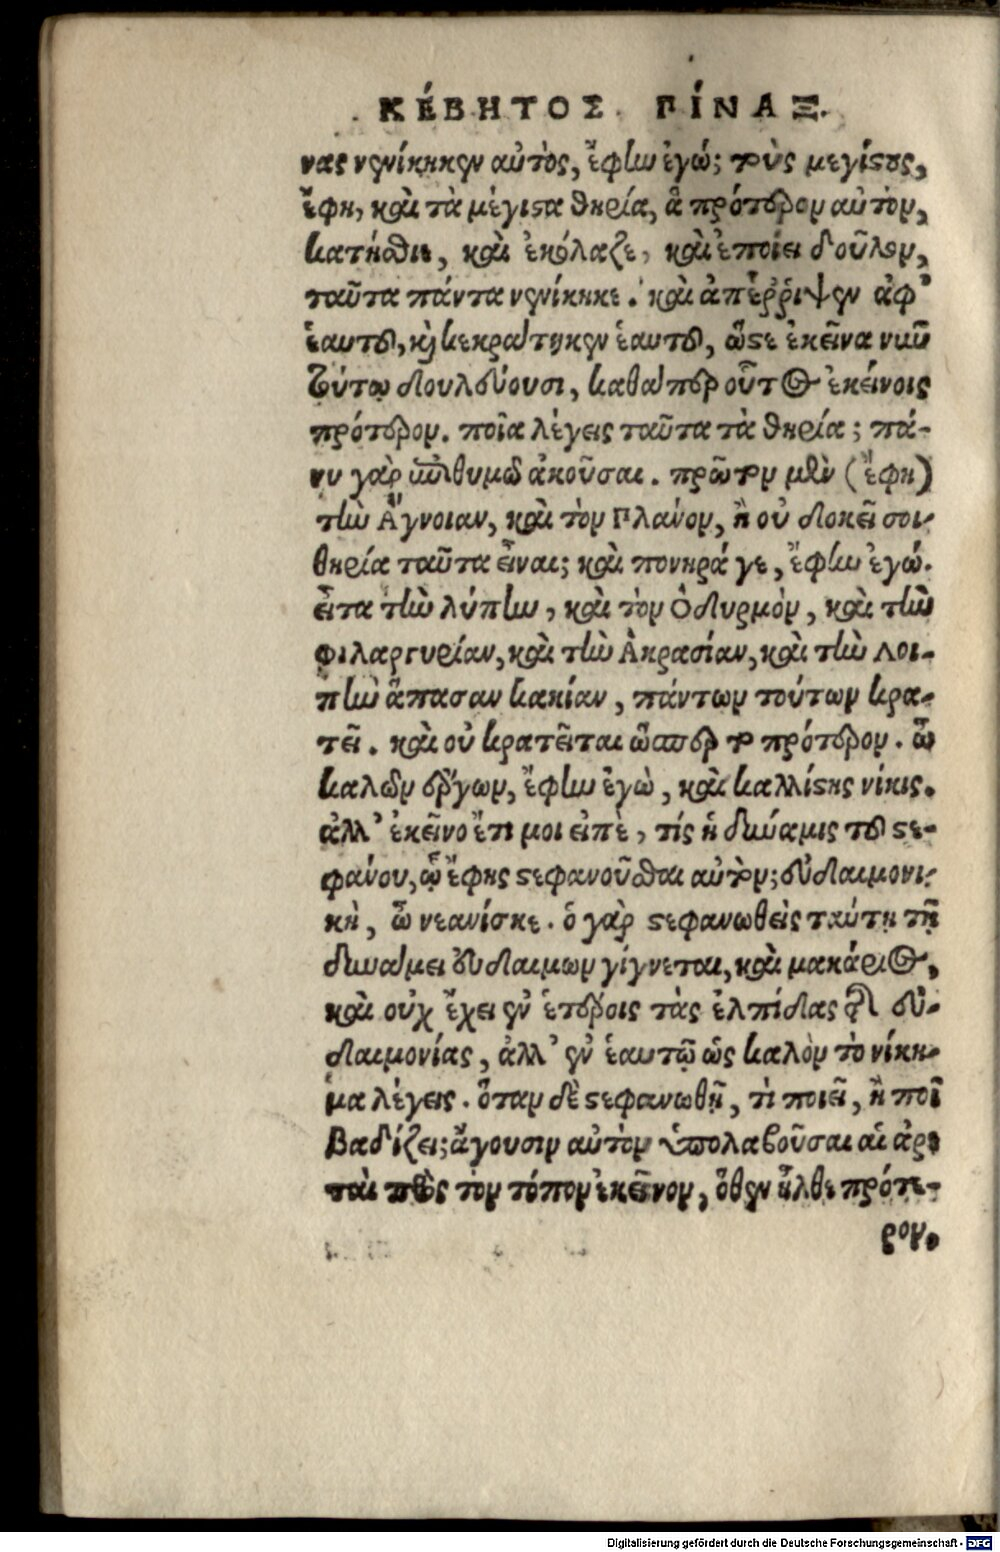 ΚΈΒΗΤΟΣ ΠΊΝΑΞ.
νας νενίκηκεν αὐτὸς, ἔφην ἐγώ; τοὺς μεγίστους,
ἔφη, καὶ τὰ μέγιστα θηρία, ἃ πρότερον αὐτὸν,
κατήσθιε, καὶ ἐκόλαζε, καὶ ἐποίει δοῦλον,
ταῦτα πάντα νενίκηκε. καὶ ἀπέῤῥιψεν ἀφ'
ἑαυτοῦ, καὶ κεκράτηκεν ἑαυτοῦ, ὥστε ἐκεῖνα νῦν
τούτῳ δουλεύουσι, καθάπερ οὗτος ἐκείνοις
πρότερον. ποῖα λέγεις ταῦτα τὰ θηρία; πά-
νυ γὰρ ἐπιθυμῶ ἀκοῦσαι. πρῶτον μὲν (ἔφη)
τὴν Ἄγνοιαν, καὶ τὸν Πλάνον, ἢ οὐ δοκεῖ σοι
θηρία ταῦτα εἶναι; καὶ πονηρά γε, ἔφην ἐγώ.
εἶτα τὴν λύπην, καὶ τὸν Ὀδυρμὸν, καὶ τὴν
Φιλαργυρίαν, καὶ τὴν Ἀκρασίαν, καὶ τὴν Λοι-
πὴν ἅπασαν κακίαν, πάντων τούτων κρα-
τεῖ. καὶ οὐ κρατεῖται ὥσπερ τὸ πρότερον. ὦ
καλῶν ἔργων, ἔφην ἐγὼ, καὶ καλλίστης νίκης.
ἀλλ' ἐκεῖνο ἔτι μοι εἰπὲ, τίς ἡ δύναμις τοῦ στε-
φάνου, ᾧ ἔφης στεφανοῦσθαι αὐτόν; εὐδαιμονι-
κὴ, ὦ νεανίσκε. ὁ γὰρ στεφανωθεὶς ταύτῃ τῇ
δυνάμει εὐδαίμων γίγνεται, καὶ μακάριος,
καὶ οὐχ ἔχει ἐν ἑτέροις τὰς ἐλπίδας τῆς εὐ-
δαιμονίας, ἀλλ' ἐν ἑαυτῷ ὡς καλὸν τὸ νίκη-
μα λέγεις. ὅταν δὲ στεφανωθῇ, τὶ ποιεῖ, ἢ ποῖ
βαδίζει; ἄγουσιν αὐτὸν ὑπολαβοῦσαι αἱ ἀρε
ταὶ πρὸς τὸν τόπον ἐκεῖνον, ὅθεν ἦλθε πρότε-
ρον.
Digitalisierung gefördert durch die Deutsche Forschungsgemeinschaft - DFG